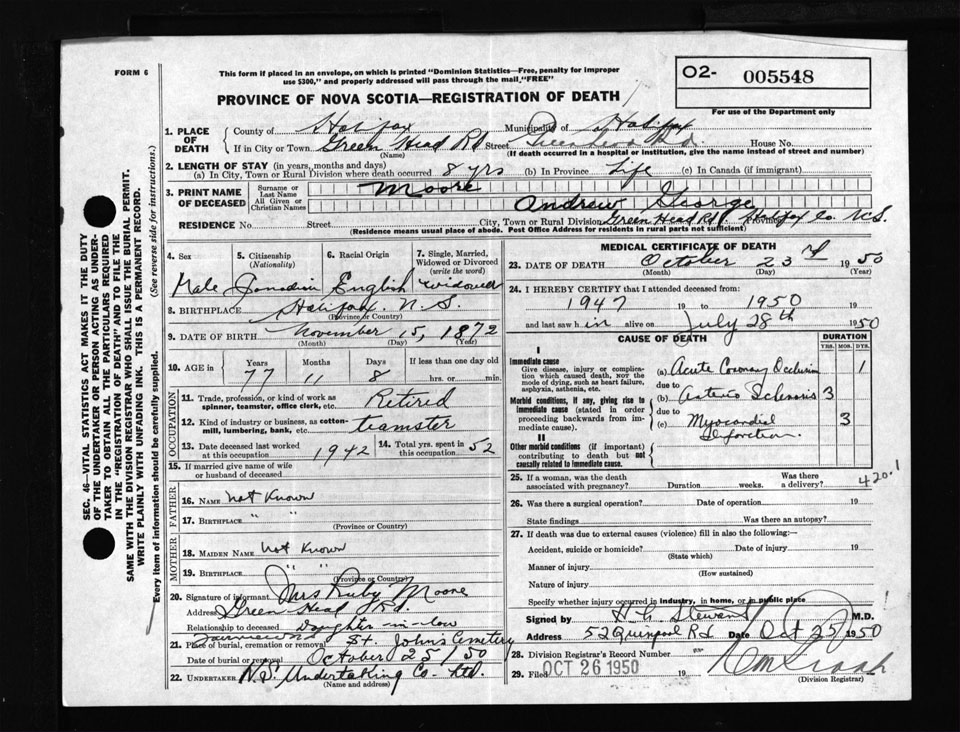 FORM 6
This form if placed in an envelope, on which is printed "Dominion Statistics—Free, penalty for improper
use $300," and properly addressed will pass through the mail, "FREE"
O2- 005548
For use of the Department only
PROVINCE OF NOVA SCOTIA—REGISTRATION OF DEATH
SEC. 46—VITAL STATISTICS ACT MAKES IT THE DUTY
OF THE UNDERTAKER OR PERSON ACTING AS UNDER-
TAKER TO OBTAIN ALL THE PARTICULARS REQUIRED
IN THE "REGISTRATION OF DEATH" AND TO FILE THE
SAME WITH THE DIVISION REGISTRAR WHO SHALL ISSUE THE BURIAL PERMIT.
WRITE PLAINLY WITH UNFADING INK. THIS IS A PERMANENT RECORD.
(See reverse side for instructions.)
Every item of information should be carefully supplied.
1. PLACE OF DEATH
County of Halifax Municipality of Halifax
If in City or Town Green Head Rd Street House No.
(Name) (If death occurred in a hospital or institution, give the name instead of street and number)
2. LENGTH OF STAY (in years, months and days)
(a) In City, Town or Rural Division where death occurred 8 yrs (b) In Province Life (c) In Canada (if immigrant)
3. PRINT NAME OF DECEASED
Surname or Last Name Moore
All Given or Christian Names Andrew George
RESIDENCE No. Street City, Town or Rural Division Green Head Rd Province Halifax Co. N.S.
(Residence means usual place of abode. Post Office Address for residents in rural parts not sufficient)
4. Sex
Male
5. Citizenship
(Nationality)
Canadian
6. Racial Origin
English
7. Single, Married,
Widowed or Divorced
(write the word)
Widowed
8. BIRTHPLACE Halifax, N.S.
(Province or Country)
9. DATE OF BIRTH November 15, 1872
(Month) (Day) (Year)
10. AGE in
Years Months Days If less than one day old
77 11 8 hrs. or min.
OCCUPATION
11. Trade, profession, or kind of work as
spinner, teamster, office clerk, etc. Retired
12. Kind of industry or business, as cotton-
mill, lumbering, bank, etc. teamster
13. Date deceased last worked
at this occupation 1942
14. Total yrs. spent in
this occupation 52
15. If married give name of wife
or husband of deceased
FATHER
16. Name not Known
17. Birthplace " "
(Province or Country)
MOTHER
18. Maiden Name not Known
19. Birthplace " "
(Province or Country)
20. Signature of informant Mrs Ruby Moore
Address Green Head Rd.
Relationship to deceased Daughter-in-law
21. Place of burial, cremation or removal Fairview NS St. John's Cemetery
Date of burial or removal October 25/50
22. UNDERTAKER N.S. Undertaking Co. Ltd.
(Name and address)
MEDICAL CERTIFICATE OF DEATH
23. DATE OF DEATH October 23 1950
(Month) (Day) (Year)
24. I HEREBY CERTIFY that I attended deceased from:
1947 19 to 1950 19
and last saw h im alive on July 28th 1950
CAUSE OF DEATH
DURATION
YRS. MOS. DYS.
I
Immediate cause
Give disease, injury or complica-
tion which caused death, not the
mode of dying, such as heart failure,
asphyxia, asthenia, etc.
(a) Acute Coronary Occlusion 1
due to
Morbid conditions, if any, giving rise to
immediate cause (stated in order of
proceeding backwards from im-
mediate cause).
(b) Arterio Sclerosis 3
due to
(c) Myocardial Infarction. 3
II
Other morbid conditions (if important)
contributing to death but not
causally related to immediate cause.
420.1
25. If a woman, was the death
associated with pregnancy? Duration weeks. Was there
a delivery?
26. Was there a surgical operation? Date of operation 19
State findings Was there an autopsy?
27. If death was due to external causes (violence) fill in also the following:—
Accident, suicide or homicide? Date of injury 19
(State which)
Manner of injury
(How sustained)
Nature of injury
Specify whether injury occurred in industry, in home, or in public place
Signed by H G Stewart M.D.
Address 52 Quinpool Rd Date Oct 25 1950
28. Division Registrar's Record Number
29. Filed OCT 26 1950 19
(Division Registrar)